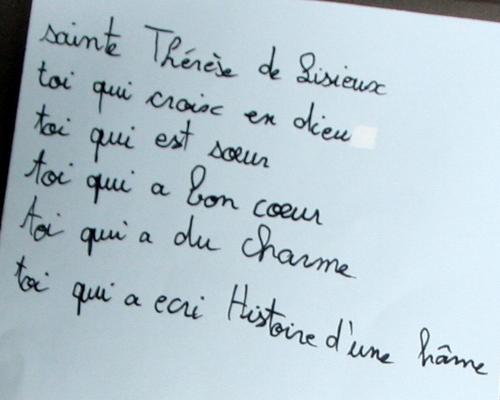 sainte Thérèse de Lisieux
toi qui croisc en dieu
toi qui est sœur
toi qui a bon cœur
toi qui a du charme
toi qui a ecri Histoire d'une hâme